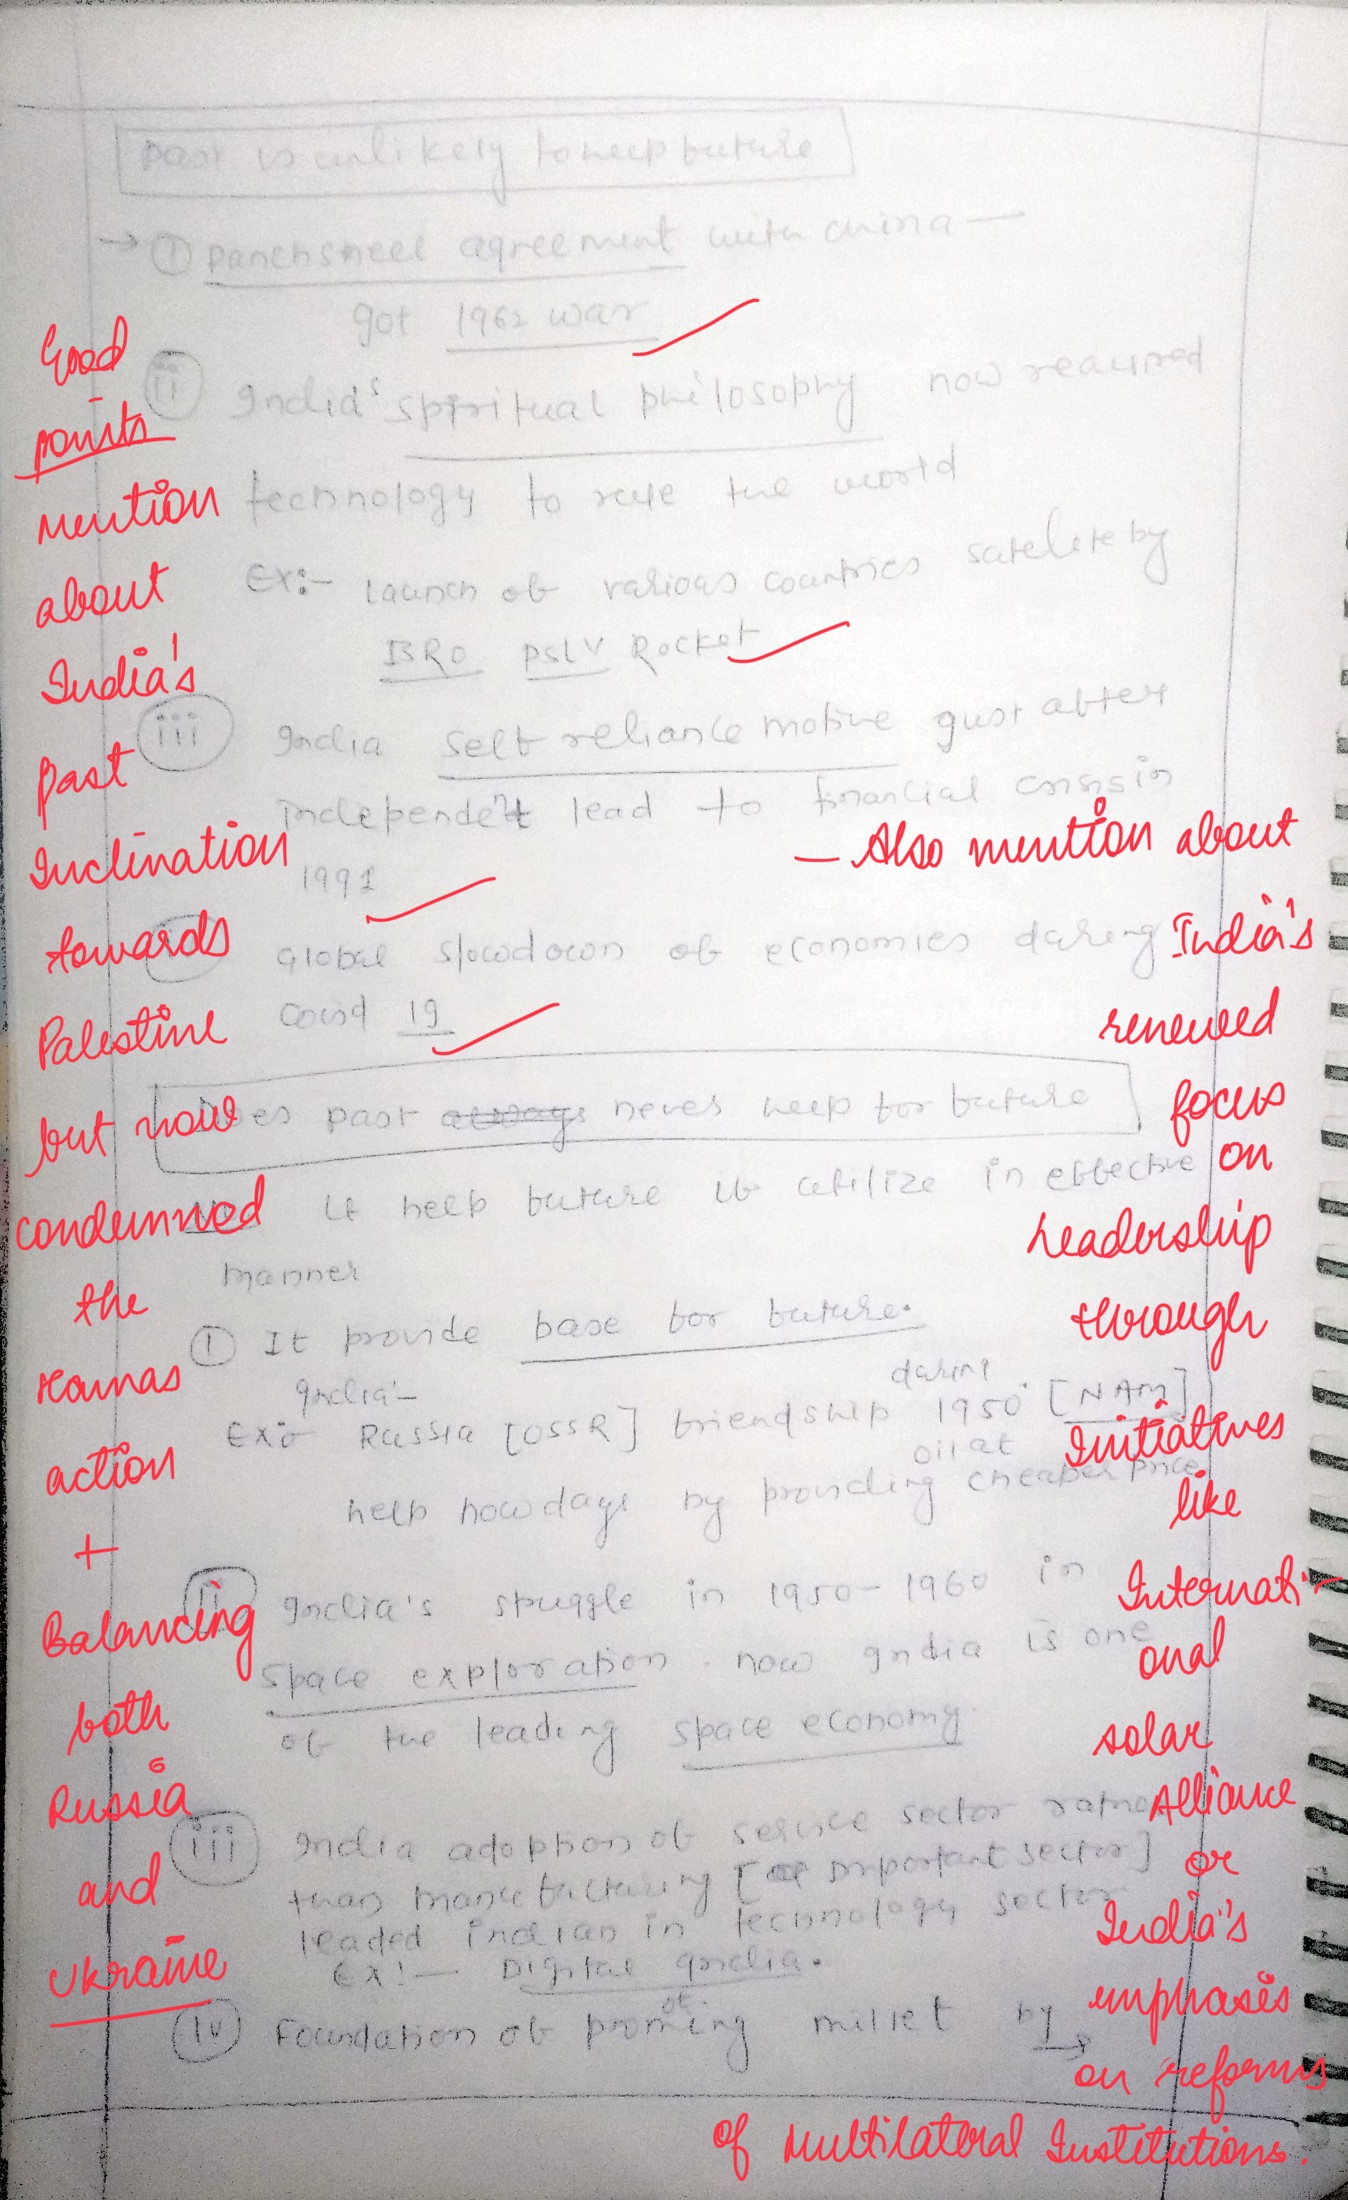 Past is unlikely to help future
→ ① Panchsheel agreement with China —
got 1962 war
ii India's spiritual philosophy now required
technology to rule the world
Ex:- Launch of various countries satelite by
ISRO PSLV Rocket
iii India self reliance motive gust after
independent lead to financial crisis in
1991
Global slowdown of economies during
Covid 19
Does past always never help for future
It help future if utilize in effective
manner
① It provide base for future.
Ex:- India- Russia [USSR] friendship during 1950 [NAM]
help nowdays by providing oil at cheaper price
ii India's struggle in 1950-1960 in
space exploration. now India is one
of the leading space economy.
iii India adoption of service sector
than manufacturing [ important sector]
leaded indian in technology sector
Ex!- Digital India.
iv Foundation of millet by →
Good
points
Mention
about
India's
past
Inclination
towards
Palestine
but now
condemned
the
Hamas
action
+
Balancing
both
Russia
and
Ukraine
— Also mention about
India's
renewed
focus
on
Leadership
through
Initiatives
like
Internati-
onal
solar
Alliance
or
India's
emphasis
on reforms
of Multilateral Institutions.